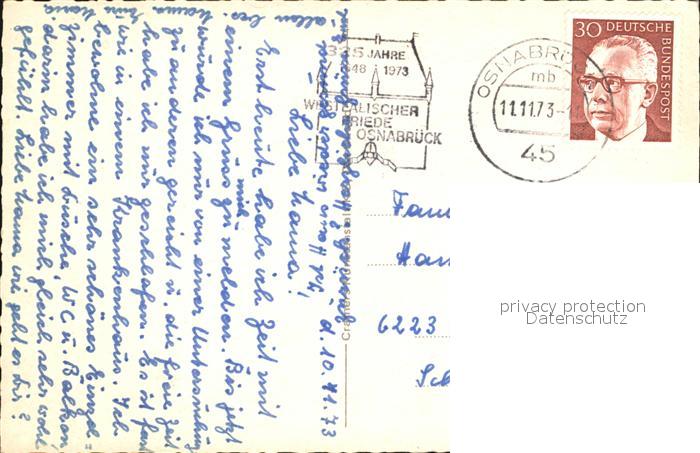 d. 10.11.73
Liebe Mama!
Erst heute habe ich Zeit mit
einem Gruss zu melden. Bis jetzt
mich
würde ich nur von einer Untersuchung
zu anderen gereicht u. die freie Zeit
habe ich nur geschlafen. Es ist fast
wie in einem Krankenhaus. Ich
bewohne ein sehr schönes Einzel=
zimmer mit Dusche, W.C u. Balkon
darin habe ich mich gleich sehr wohl
gefühlt. Liebe Mama wie geht es Dir?
allen
325 JAHRE
1648 1973
WESTFÄLISCHER
FRIEDE
OSNABRÜCK
OSNABRÜ
mb
11.11.73-
45
30 DEUTSCHE
BUNDESPOST
Fam
Han
6223
Sch
privacy protection
Datenschutz